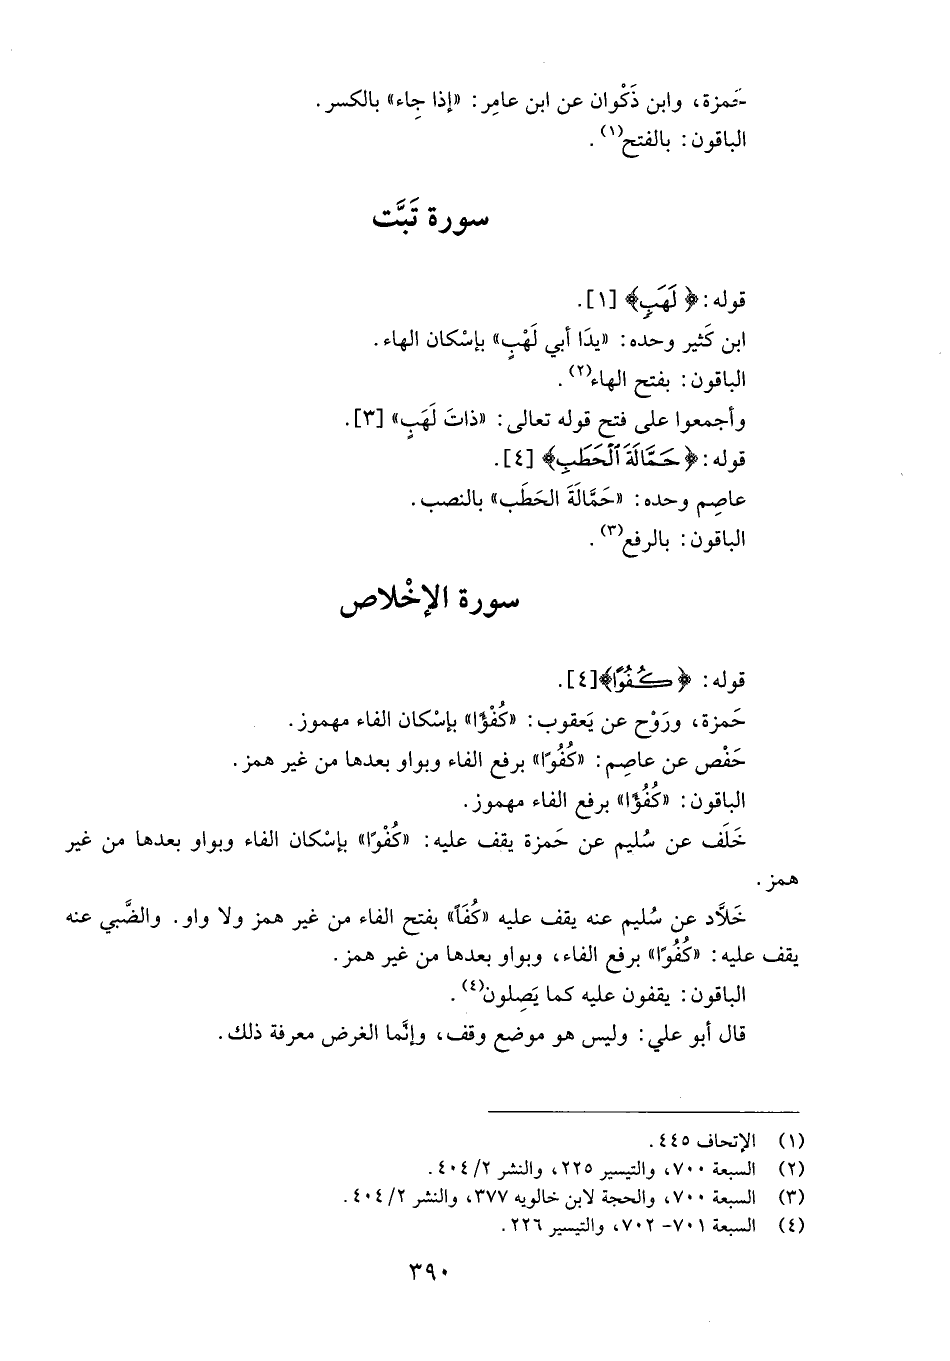 حَمزة، وابن ذَكْوان عن ابن عامِر: «إذا جِاء» بالكسر.
الباقون: بالفتح(١).
سورة تَبَّت
قوله: ﴿لَهَبٍ﴾ [١].
ابن كَثير وحده: «يدَا أبي لَهْبٍ» بإسْكان الهاء.
الباقون: بفتح الهاء(٢).
وأجمعوا على فتح قوله تعالى: «ذاتَ لَهَبٍ» [٣].
قوله: ﴿حَمَّالَةَ ٱلْحَطَبِ﴾ [٤].
عاصِم وحده: «حَمَّالَةَ الحَطَب» بالنصب.
الباقون: بالرفع(٣).
سورة الإخْلاص
قوله: ﴿كُفُوًا﴾[٤].
حَمزة، ورَوْح عن يَعقوب: «كُفْؤًا» بإسْكان الفاء مهموز.
حَفْص عن عاصِم: «كُفُوًا» برفع الفاء وبواو بعدها من غير همز.
الباقون: «كُفُؤًا» برفع الفاء مهموز.
خَلَف عن سُليم عن حَمزة يقف عليه: «كُفْوًا» بإسْكان الفاء وبواو بعدها من غير
همز.
خَلاَّد عن سُليم عنه يقف عليه «كُفَاً» بفتح الفاء من غير همز ولا واو. والضَّبي عنه
يقف عليه: «كُفُوًا» برفع الفاء، وبواو بعدها من غير همز.
الباقون: يقفون عليه كما يَصِلون(٤).
قال أبو علي: وليس هو موضع وقف، وإنَّما الغرض معرفة ذلك.
(١) الإتحاف ٤٤٥.
(٢) السبعة ٧٠٠، والتيسير ٢٢٥، والنشر ٤٠٤/٢.
(٣) السبعة ٧٠٠، والحجة لابن خالويه ٣٧٧، والنشر ٤٠٤/٢.
(٤) السبعة ٧٠١- ٧٠٢، والتيسير ٢٢٦.
٣٩٠